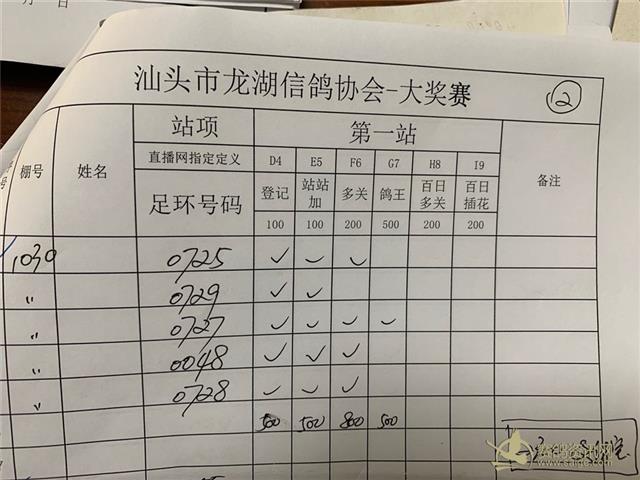 月 日
汕头市龙湖信鸽协会-大奖赛 12
号 棚号 姓名 站项 第一站 备注
直播网指定定义 D4 E5 F6 G7 H8 I9
足环号码 登记 站站加 多关 鸽王 百日多关 百日插花
100 100 200 500 200 200
1030 0725 ✓ ✓ ✓
〃 0729 ✓ ✓
〃 0727 ✓ ✓ ✓ ✓
〃 0048 ✓ ✓ ✓
〃 0728 ✓ ✓ ✓
500 500 800 500
赛鸽资讯网
www.saige.com